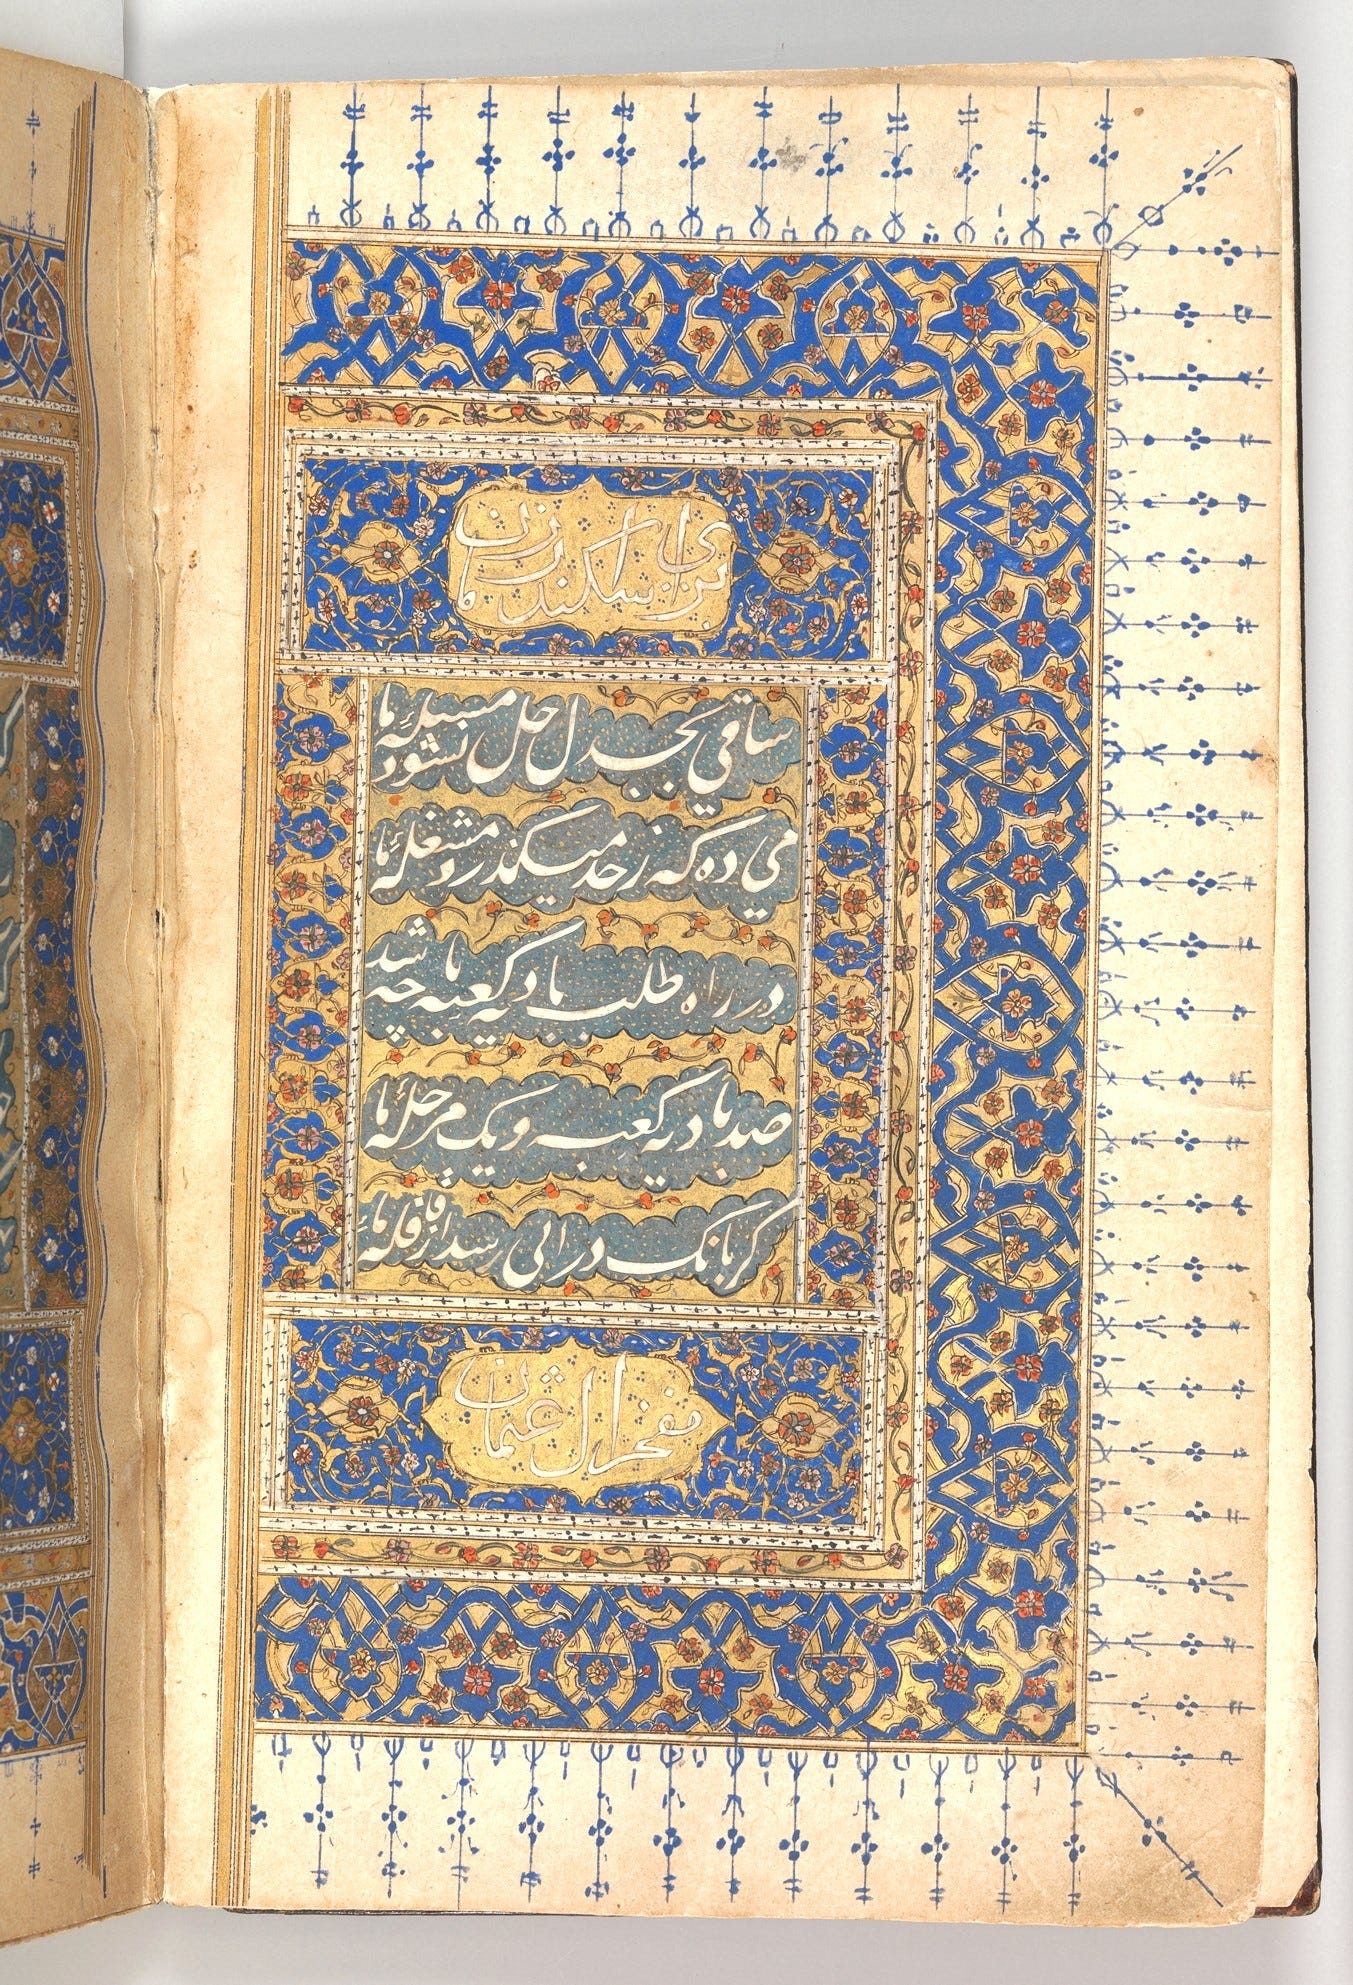 برای اسکندر زمان
ساقی بجدل حل نشود مسیلهٔ ما
می ده که ز حد میکذرد مشغلهٔ ما
در راه طلب بادیه کعبه چه باشد
صد بادیه کعبه و یک مرحلهٔ ما
کر بانک درائی رسد از قافلهٔ ما
مفخر ال عثمان